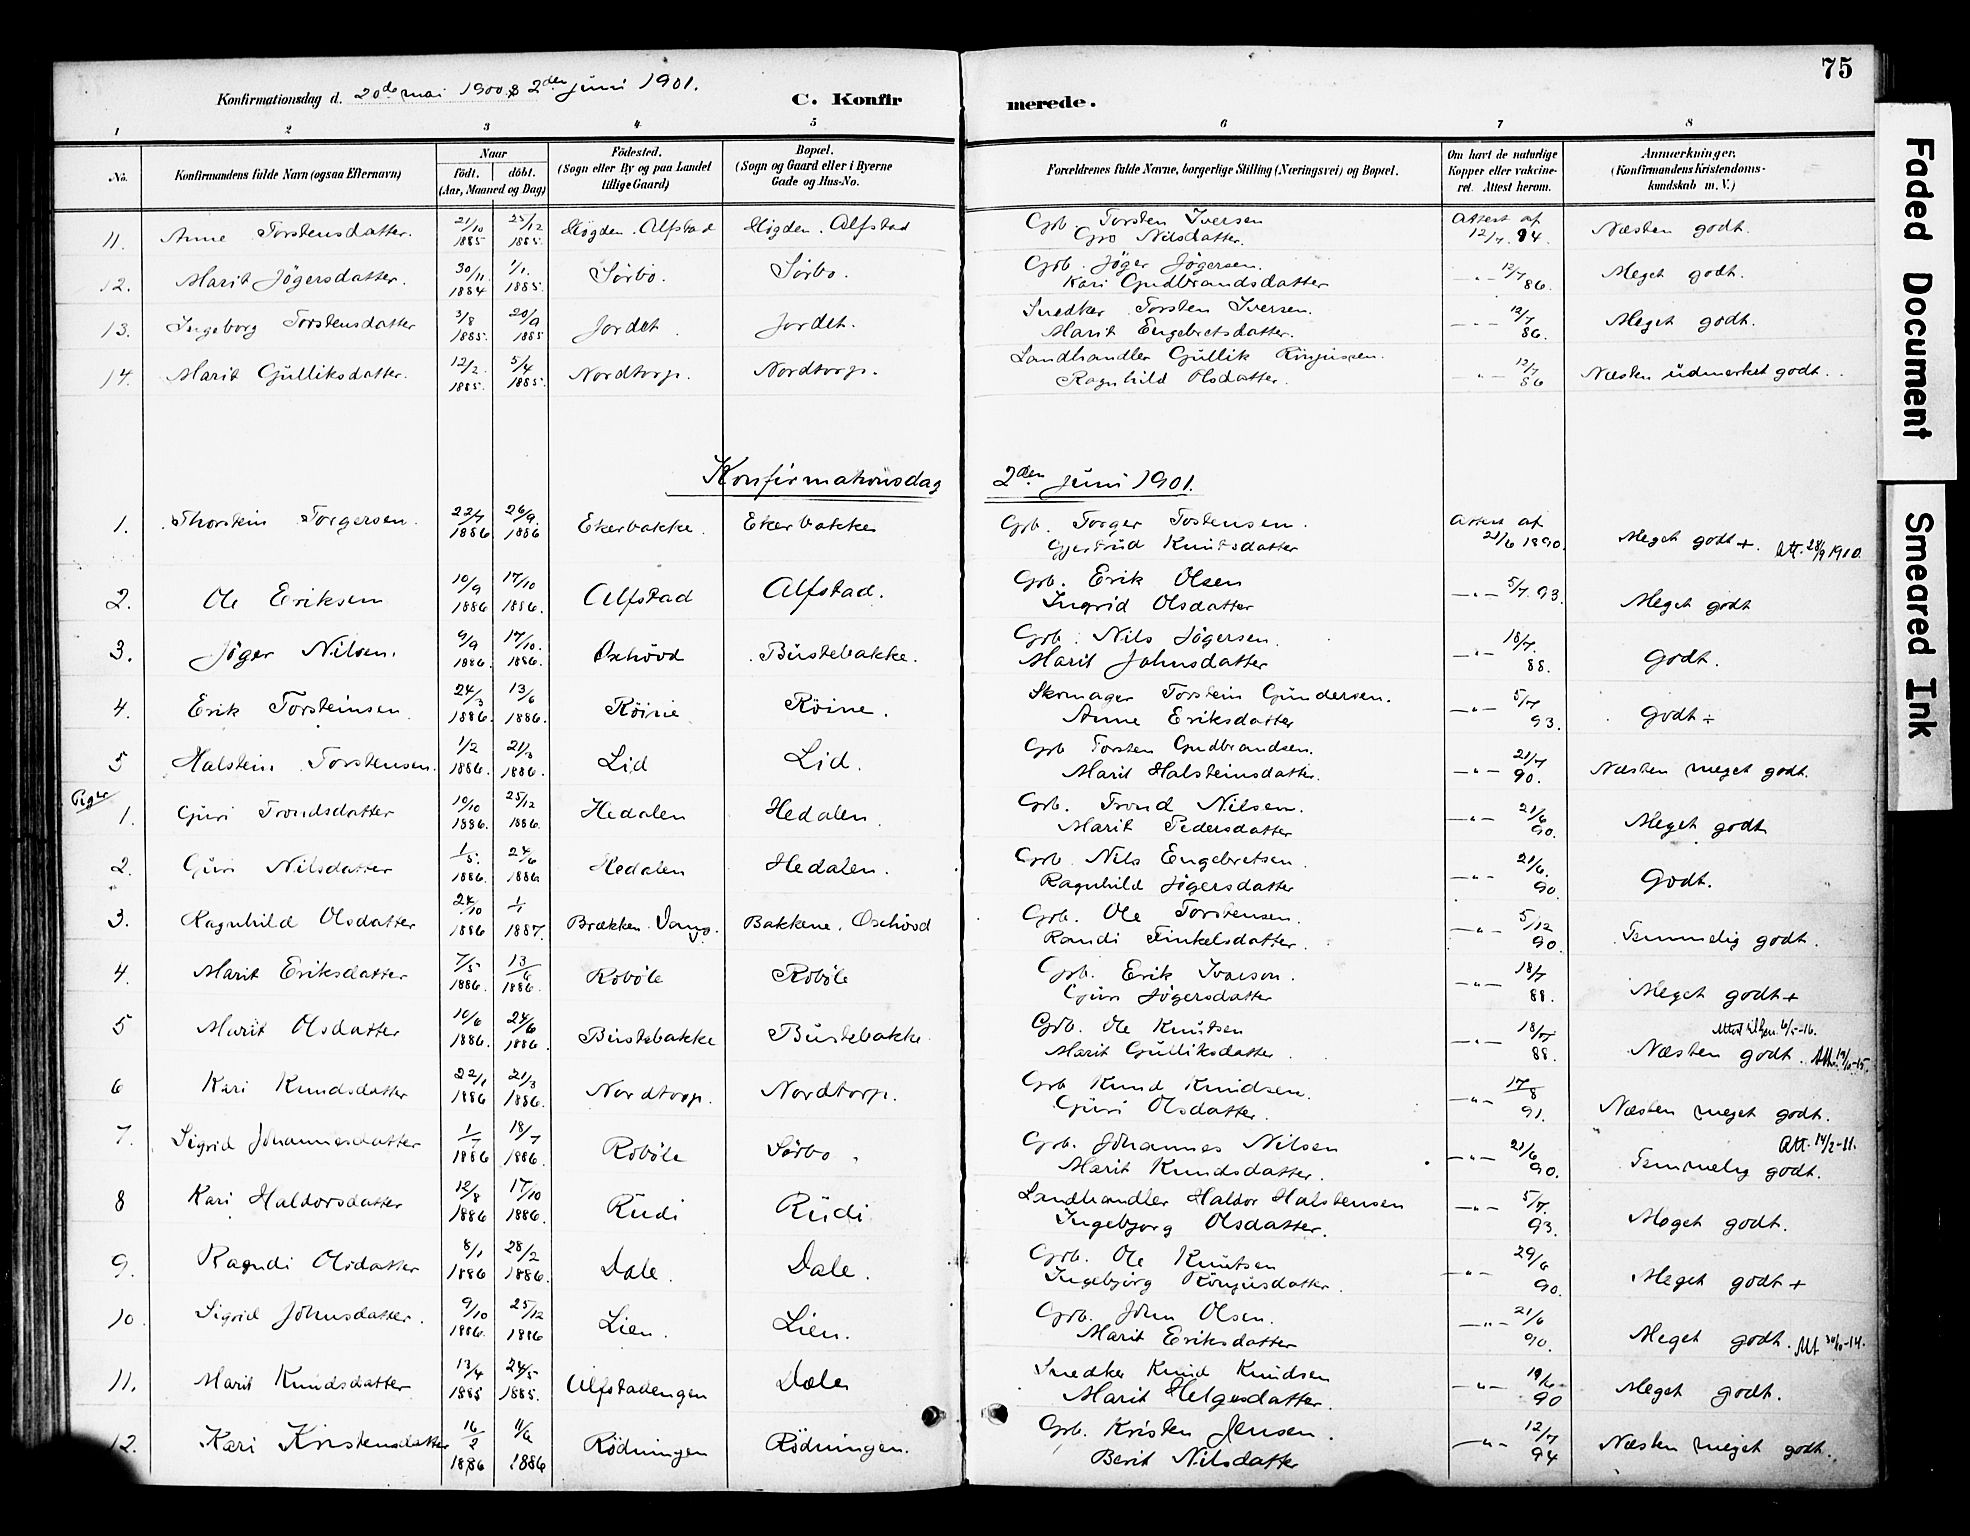 75
Konfirmationsdag d. 20de mai 1900 & 2den juni 1901.
C. Konfirmerede.
1 2 3 4 5 6 7 8
No. Konfirmandens fulde Navn (ogsaa Efternavn) Naar født. døbt. (Aar, Maaned og Dag) Fødested. (Sogn eller By og paa Landet tillige Gaard) Bopæl. (Sogn og Gaard eller i Byerne Gade og Hus-No. Forældrenes fulde Navne, borgerlige Stilling (Næringsvei) og Bopæl. Om havt de naturlige Kopper eller vakcineret. Attest herom. Anmærkninger. (Konfirmandens Kristendomskundskab m. V.)
11. Anne Torstensdatter. 21/10 1885 25/12 1885. Høgden. Alfstad Høgden. Alfstad Grb. Torsten Iversen Gro Nilsdatter. Attest af 12/7. 94. Næsten godt.
12. Marit Jögersdatter. 30/11. 1884 1/1. 1885. Sørbo. Sørbo. Grb. Jöger Jögersen. Kari Gudbrandsdatter -"- 12/7 86. Meget godt.
13. Ingeborg Torstensdatter 3/8 1885. 20/9 1885 Jordet. Jordet. Snedker Torsten Iversen. Marit Engebretsdatter. -"- 12/7 86. Meget godt.
14. Marit Gulliksdatter. 12/2. 1885. 5/4 1885. Nordtorp. Nordtorp. Landhandler Gullik Ragnhild Olsdatter. -"- 12/7 86 Næsten udmerket godt.
Konfirmationsdag 2den juni 1901.
1. Thorstein Torgersen. 22/7 1886 26/9. 1886 Ekerbakke. Ekerbakke Grb. Torger Tostensen. Gjertrud Knutsdatter Attest af 21/6 1890. Meget godt +. Att. 28/9 1910.
2. Ole Eriksen 10/9 1886 17/10 1886. Alfstad Alfstad. Grb. Erik Olsen Ingrid Olsdatter -"- 5/7. 93. Meget godt
3. Jöger Nilsen. 9/9 1886. 17/10. 1886. Oxhövd Bustebakke. Grb. Nils Jögersen. Marit Johnsdatter -"- 18/7. 88. Godt.
4. Erik Torsteinsen 24/3 1886. 13/6 1886. Röine Röine. Skomager Torstein Gundersen. Anne Eriksdatter -"- 5/7 93. Godt ÷
5 Halstein Torstensen. 1/2 1886. 21/3 1886. Lid Lid. Grb Torsten Gudbrandsen. Marit Halsteinsdatter. -"- 21/7 90. Næsten meget godt.
Piger
1. Guri Trondsdatter 10/10 1886. 25/12 1886. Hedalen Hedalen. Grb. Trond Nilsen. Marit Pedersdatter -"- 21/6 90. Meget godt
2. Guri Nilsdatter 1/5. 1886. 24/6 1886 Hedalen Hedalen. Grb. Nils Engebretsen. Ragnhild Jögersdatter -"- 21/6. 90. Godt.
3. Ragnhild Olsdatter 24/10 1886 1/1 1887. Brækken. Vang. Bakkene. Oxhövd Grb. Ole Torstensen. Randi Finkelsdatter. -"- 5/12 90. Temmelig godt.
4. Marit Eriksdatter 7/5 1886. 13/6 1886. Roböle Roböle Grb. Erik Ivarson. Guri Jögersdatter -"- 18/7 88. Meget godt +
5 Marit Olsdatter 10/6 1886. 24/6 1886. Bustebakke Bustebakke. Grb. Ole Knutsen Marit Gulliksdatter. -"- 18/7 88. Næsten godt.
6 Kari Knudsdatter 22/1 1886 21/3 1886. Nordtorp. Nordtorp. Grb Knud Knudsen. Guri Olsdatter. -"- 17/8 91. Næsten meget godt.
7. Sigrid Johannesdatter 1/7 1886 18/7 1886. Roböle Sørbo. Grb. Johannes Nilsen Marit Knudsdatter. -"- 21/6 90. Att. 14/2-11. Temmelig godt.
8 Kari Haldorsdatter 12/8 1886 17/10 1886. Rudi Rudi Landhandler Haldor Halstensen Ingebjorg Olsdatter. -"- 5/7. 93. Meget godt.
9. Ragndi Olsdatter 8/1 1886 28/2 1886. Dale. Dale. Grb. Ole Knutsen Ingebjörg Röngusdatter. -"- 29/6 90. Meget godt +
10. Sigrid Johnsdatter. 9/10 1886. 25/12 1886 Lien. Lien. Grb. John Olsen. Marit Eriksdatter -"- 21/6 90. Meget godt.
11. Marit Knudsdatter 13/4 1885 24/5 1885. Alfstadengen Dale Snedker Knud Knudsen Marit Helgesdatter. -"- 19/6. 90 Meget godt.
12. Kari Kristensdatter 16/2 1886 1886 Rödningen Rödningen. Grb. Kristen Jensen. Berit Nilsdatter -"- 12/7 94 Næsten meget godt.
Faded Document
Smeared Ink